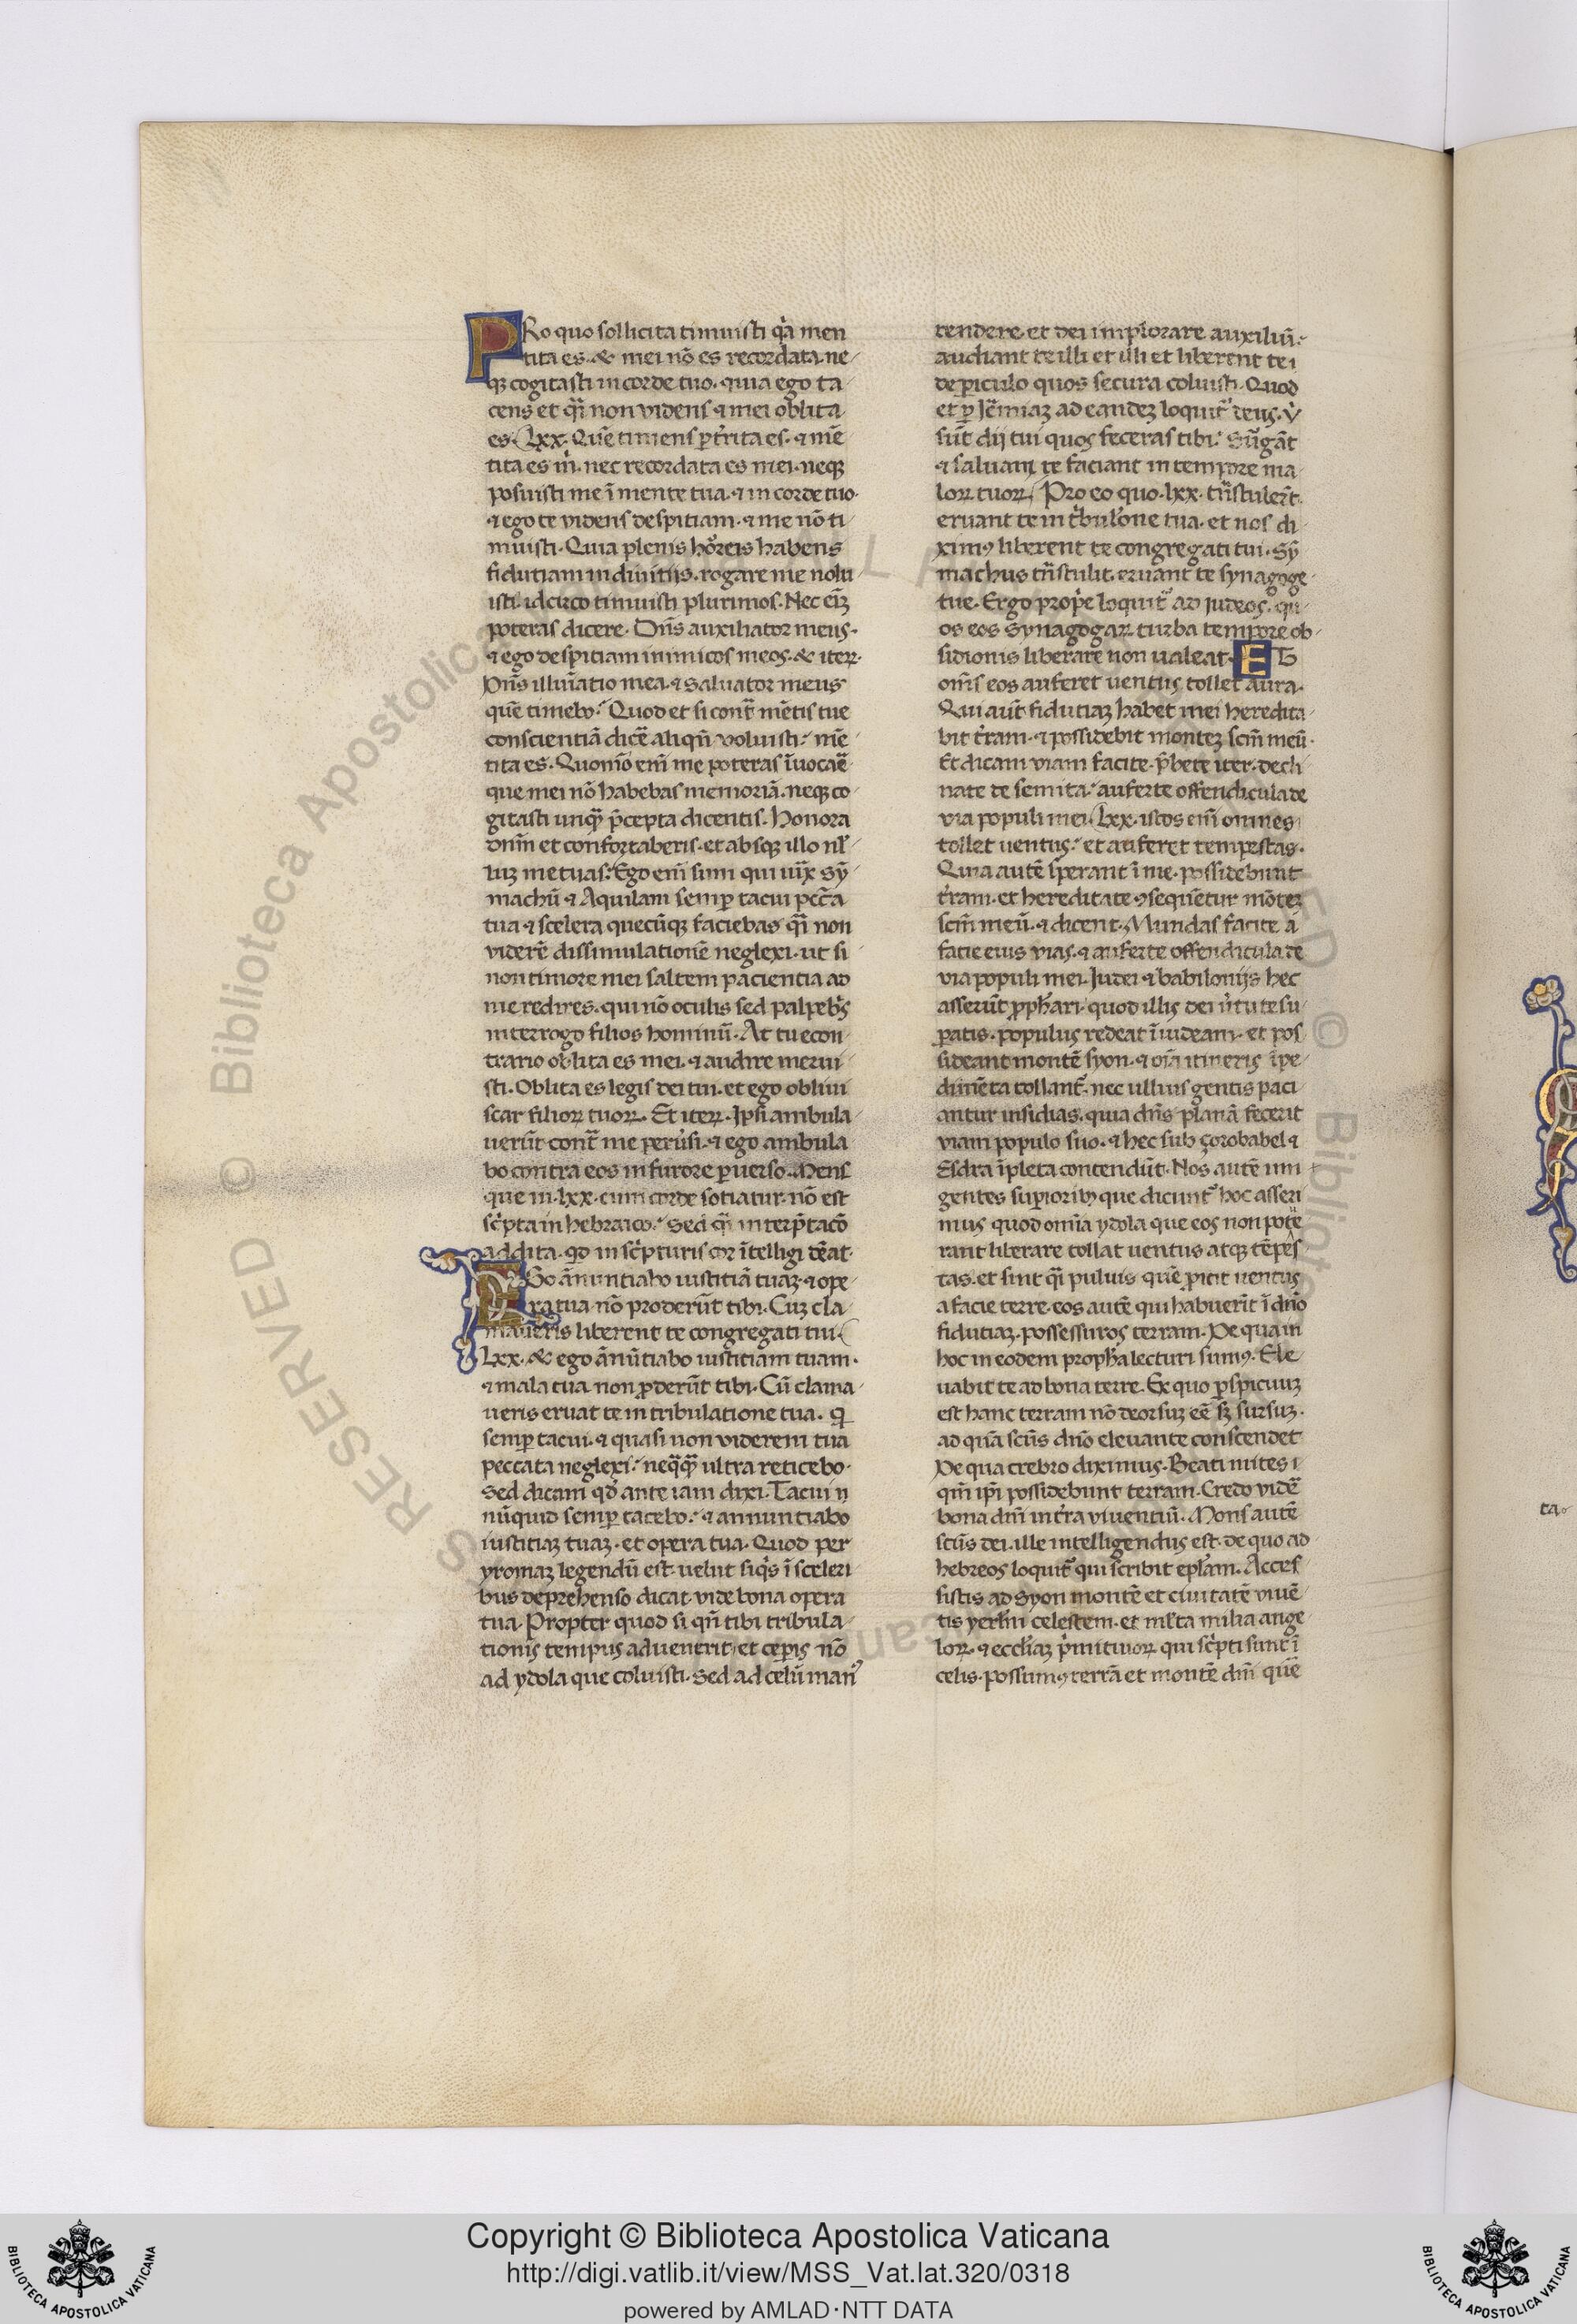 PRo quo sollicita timuisti qͥa men
tita es. & mei nō es recordata. ne
qꝫ cogitasti in corde tuo. quia ego ta
cens et qͣi non videns ⁊ mei oblita
es. Lxx. Quē timens ꝑtͥrita es. ⁊ mē
tita es m̄. nec recordata es mei. neqꝫ
posuisti me ī mente tua. ⁊ in corde tuo.
⁊ ego te videns despitiam. ⁊ me nō ti
muisti. Quia plenis horreis habens
fidutiam in diuitijs. rogare me nolu
isti. idcirco timuisti plurimos. Nec eīꝫ
poteras dicere. Dn̄s auxiliator meus.
⁊ ego despitiam inimicos meos. & iteꝝ.
Dn̄s illuīatio mea. ⁊ saluator meus
quē timebo. Quod et si contͣ mētis tue
conscientiā dicē aliqn̄ voluisti. mē
tita es. Quomō em̄ me poteras īuocare
que mei nō habebas memoriā. neqꝫ co
gitasti unqͣꝫ p̄cepta dicentis. Honora
dnm̄ et confortaberis. et absqꝫ illo nl̄
luꝫ metuas. Ego em̄ sum qui iux̄ Sȳ
machū ⁊ Aquilam semꝑ tacui pctā
tua ⁊ scelera quecūqꝫ faciebas qͣi non
viderē dissimulationē neglexi. ut si
non timore mei saltem pacientia ad
me redires. qui nō oculis sed palpebͥs
interrogo filios hominū. At tu econ
trario oblita es mei. ⁊ audire merui
sti. Oblita es legis dei tui. et ego obliui
scar filioꝝ tuoꝝ. Et iteꝝ. Ipsi ambula
uerūt contͣ me peruͥsi. ⁊ ego ambula
bo contra eos in furore ꝑuerso. Mens
que in. lxx. cum corde sotiatur. nō est
scͥpta in hebraico. Sed qͣi interp̄tacō
addita. qd̄ in scͥpturis cor ītelligi dēat.
EGo ānuntiabo iustitiā tuaꝫ. ⁊ ope
ra tua nō proderūt tibi. Cuꝫ cla
maueris liberent te congregati tui.
Lxx. & ego ānūtiabo iustitiam tuam.
⁊ mala tua non ꝓderūt tibi. Cū clama
ueris eruat te in tribulatione tua. Qͥ
semꝑ tacui. ⁊ quasi non viderem tua
peccata neglexi. neqͣqͣꝫ ultra reticebo.
Sed dicam qd̄ ante iam dixi. Tacui ꝯ
nūquid semꝑ tacebo. ⁊ annuntiabo
iustitiaꝫ tuaꝫ. et opera tua. Quod per
yroniaꝫ legendū est. uelut siqͥs ī sceleri
bus deprehenso dicat. vide bona opera
tua. Propter quod si qn̄ tibi tribula
tionis tempus aduenerit. et ceperis nō
ad ydola que coluisti. Sed ad celū manꝰ
tendere. et dei implorare auxiliū.
audiant te illi et illi et liberent te
de periculo quos secura coluisti. Quod
et ꝑ Jeͥmiaꝫ ad eandeꝫ loquitͬ deus. vͥ
sūt dij tui quos feceras tibi. Sūgāt
⁊ saluam te faciant in tempore ma
loꝝ tuoꝝ. Pro eo quo. lxx. tn̄stulert.
eruant te in tͥbul̄one tua. et nos di
ximꝰ liberent te congregati tui. Sȳ
machus tn̄stulit. eruant te synagoge
tue. Ergo propͥe loquitͬ ad iudeos. qu
os eos synagogaꝝ turba tempore ob
sidionis liberare non ualeat. ET
omīs eos auferet uentus tollet aura.
Qui aūt fidutiaꝫ habet mei heredita
bit tͥram. ⁊ possidebit monteꝫ scm̄ meū.
Et dicam viam facite. p̄bete iter. decli
nate de semita. auferte offendicula de
via populi mei. Lxx. istos em̄ omnes
tollet uentus. et auferet tempestas.
Quia autē sperant ī me. possidebunt
tͥram. et hereditate ꝯsequētur mōteꝫ
scm̄ meū. ⁊ dicent. Mundas facite a
facie eius vias. ⁊ auferte offendicula de
via populi mei. Judei ⁊ babilonijs hec
asserūt ꝓph̄ari. quod illis dei uͥtute su
ꝑatis. populus redeat ī iudeam. et pos
sideant montē syon. ⁊ oīa itineris īpe
dimēta tollantͬ. nec ullius gentis paci
antur insidias. quia dn̄s planā fecerit
viam populo suo. ⁊ hec sub çorobabel ⁊
Esdra īpleta contendūt. Nos autē uni
gentes suꝑioribꝰ que dicuntͬ hoc asseri
mus quod omīa ydola que eos non pote
rant liberare tollat uentus atqꝫ tēpes
tas. et sint qͣi puluis quē ꝓicit uentus
a facie terre. eos autē qui habuerīt ī dn̄o
fidutiaꝫ. possessuros terram. De qua in
hoc in eodem proph̄a lecturi sumꝰ. Ele
uabit te ad bona terre. Ex quo ꝑspicuuꝫ
est hanc terram nō deorsuꝫ eē sꝫ sursuꝫ.
ad quā scūs dn̄o eleuante conscendet
De qua crebro diximus. Beati mites
qm̄ ip̄i possidebunt terram. Credo videͤ
bona dn̄i in tͥra viventiū. Mons autē
scūs dei. ille intelligendus est. de quo ad
hebreos loquitͬ qui scribit epl̄am. Acces
sistis ad Syon montē et ciuitatē viuē
tis yerl̄m celestem. et ml̄ta milia ange
loꝝ. ⁊ eccl̄iaꝫ pͥmitiuoꝝ qui scͥpti sunt ī
celis. possumꝰ terrā et montē dn̄i quē
ta.
Copyright © Biblioteca Apostolica Vaticana
http://digi.vatlib.it/view/MSS_Vat.lat.320/0318
powered by AMLAD·NTT DATA
BIBLIOTECA APOSTOLICA VATICANA
BIBLIOTECA APOSTOLICA VATICANA